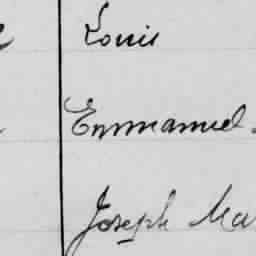 Louis
Emmanuel
Joseph Ma